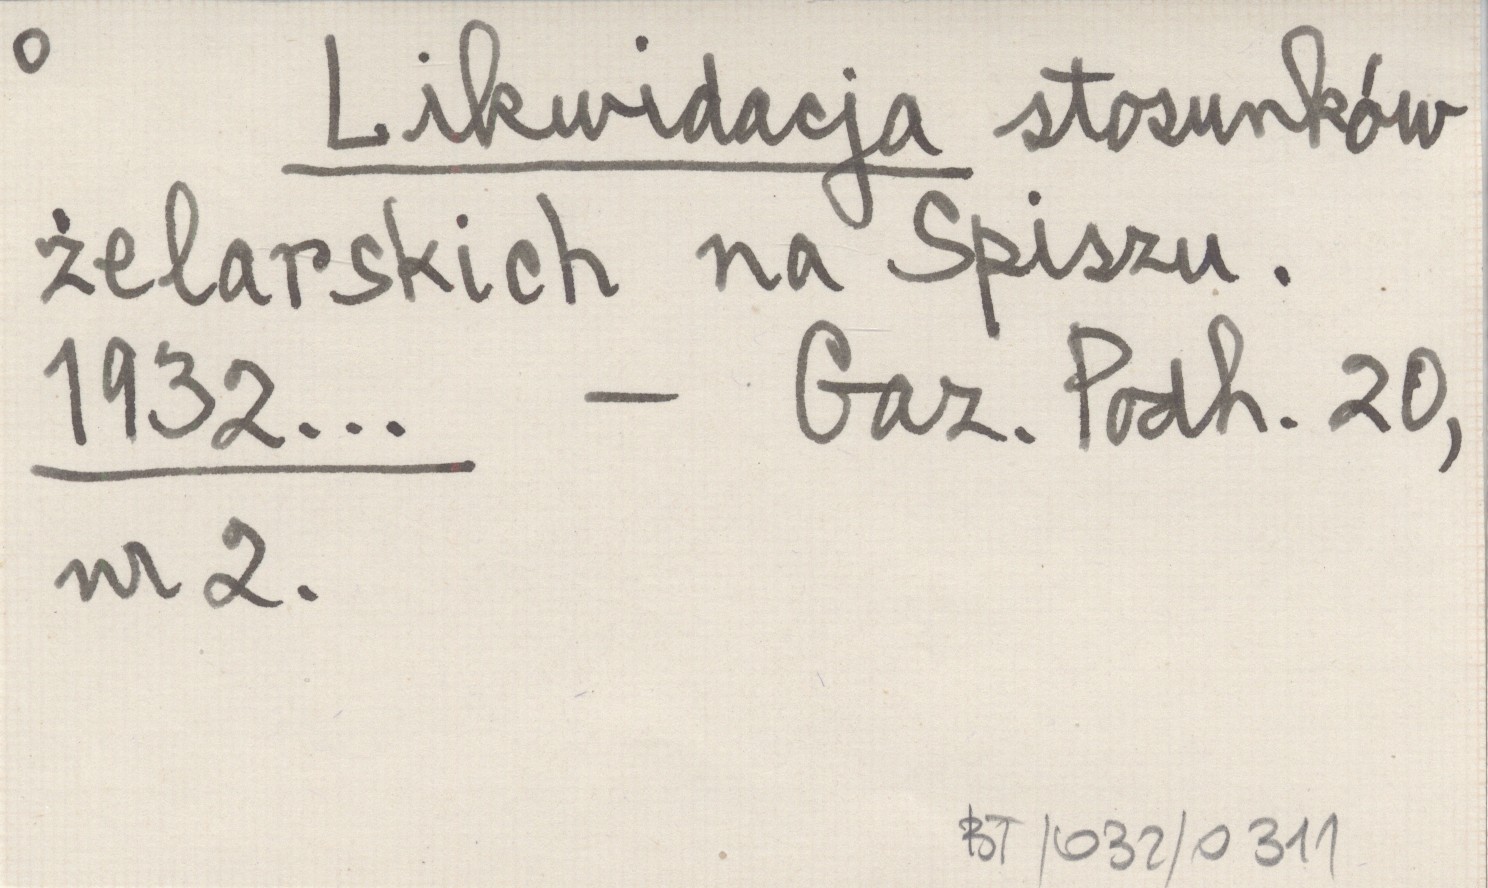 o Likwidacja stosunków
żelarskich na Spiszu.
1932... — Gaz. Podh. 20,
nr 2.
BT/032/0311